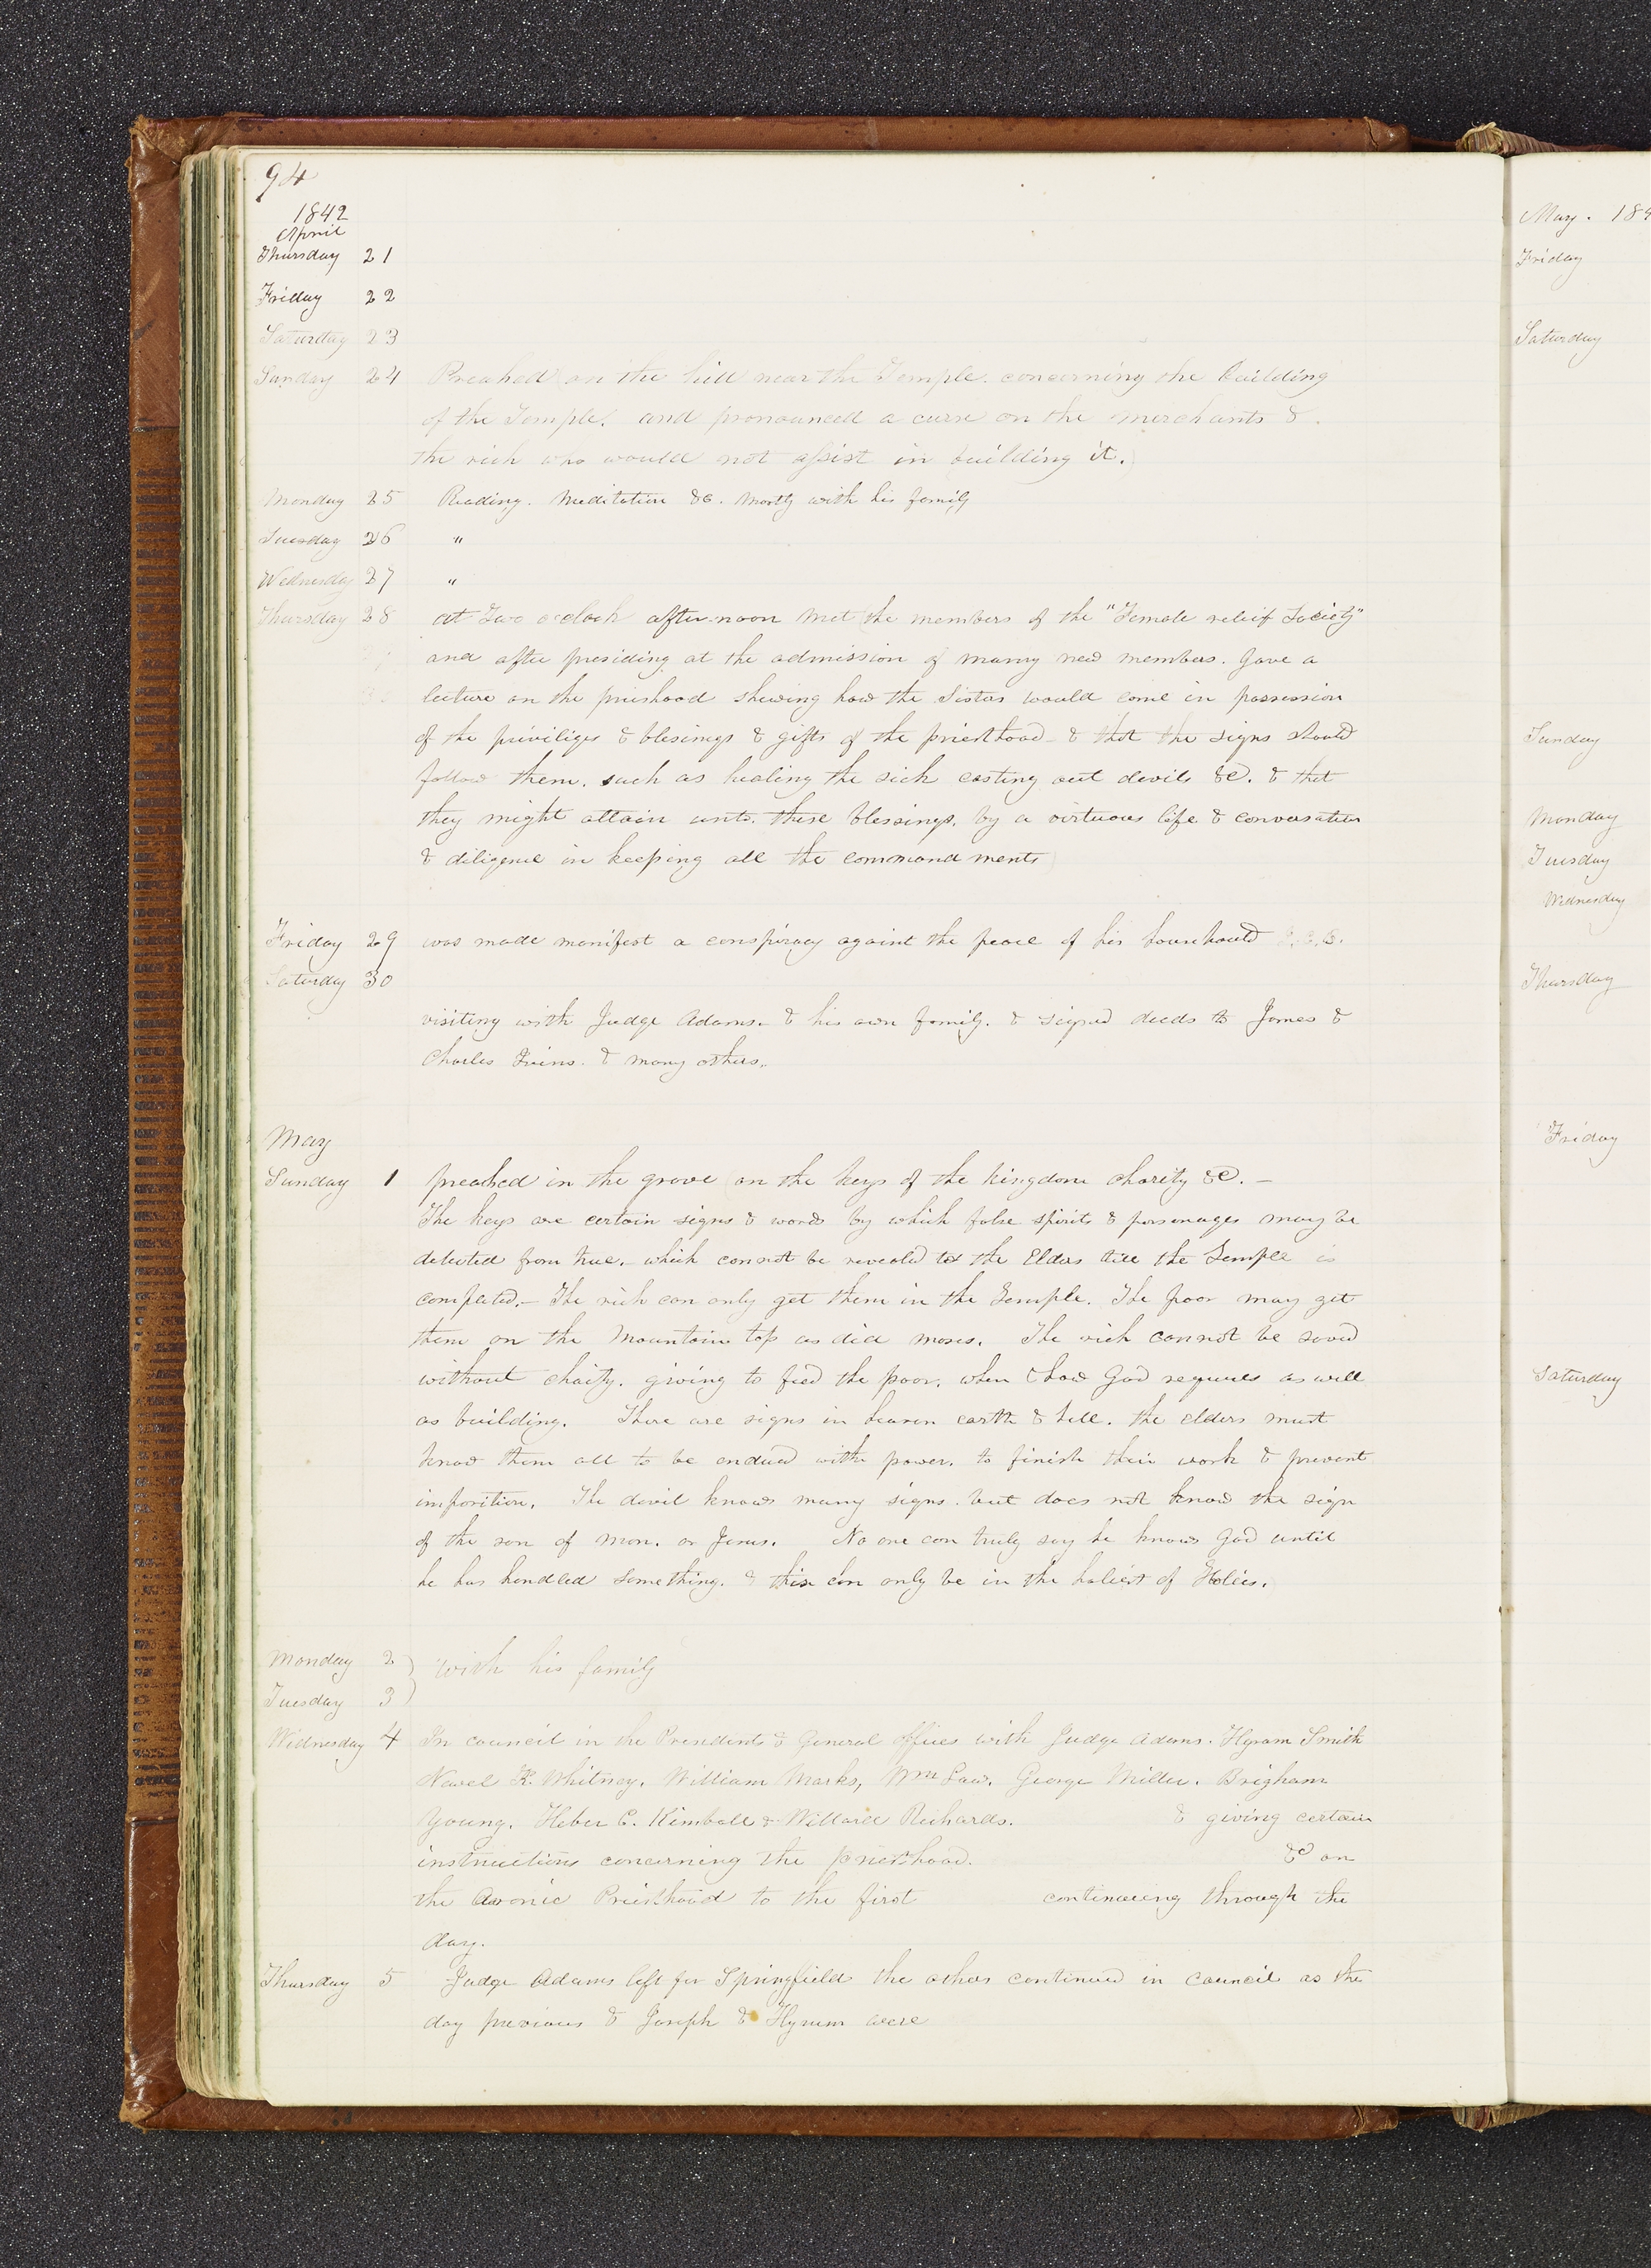 94
1842
April
Thursday 21
Friday 22
Saturday 23
Sunday 24 Preached on the hill near the Temple. concerning the building
of the Temple. and pronounced a curse on the merchants &
the rich who would not assist in building it.
Monday 25 Reading. meditation &c. mostly with his family
Tuesday 26 "
Wednesday 27 "
Thursday 28 at Two o'clock after-noon met the members of the "Female relief Society"
and after presiding at the admission of many new members. Gave a
lecture on the pries hood shewing how the Sisters would come in possession
of the priviliges & blesings & gifts of the priesthood & that the signs should
follow them. such as healing the sick casting out devils &c. & that
they might attain unto. these blessings. by a virtuous life & conversation
& diligence in keeping all the commandments
Friday 29 was made manifest a conspiracy againt the peace of his househould
Saturday 30
visiting with Judge Adams. & his own family. & signed deeds to James &
Charles Ivins. & many others.
May
Sunday 1 preached in the grove on the keys of the kingdom charity &c. —
The keys are certain signs & words by which false spirits & personages may be
detected from true. which cannot be revealed to the Elders till the Temple is
completed.— The rich can only get them in the Temple. The poor may get
them on the Mountain top as did moses. The rich cannot be saved
without chaity. giving to feed the poor. when & how God requires as well
as building. There are signs in heaven earth & hell. the elders must
know them all to be endued with power. to finish their work & prevent
imposition. The devil knows many signs. but does not know the sign
of the son of man. or Jesus. No one can truly say he knows God until
he has handled something. & this can only be in the holiest of Holies.
Monday 2 ) with his family
Tuesday 3 )
Wednesday 4 In council in the Presidents & General offices with Judge Adams. Hyram Smith
Newel K. Whitney. William Marks, Wm Law. George Miller. Brigham
Young. Heber C. Kimball & Willard Richards. & giving certain
instructions concerning the priesthood. &c on
the Aronic Priesthood to the first continueing through the
day.
Thursday 5 Judge Adams left for Springfield the others continued in Council as the
day previous & Joseph & Hyrum were
May. 184
Friday
Saturday
Sunday
Monday
Tuesday
Wednesday
Thursday
Friday
Saturday